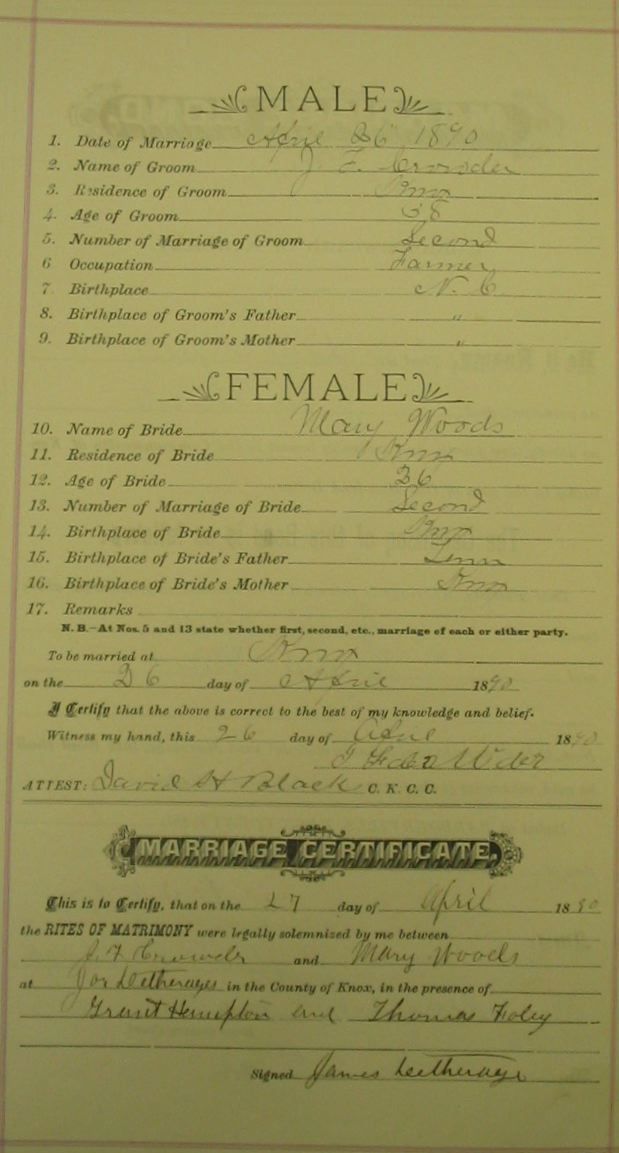 MALE
1. Date of Marriage April 26 1890
2. Name of Groom J. F. Crowder
3. Residence of Groom Knox
4. Age of Groom
5. Number of Marriage of Groom Second
6 Occupation Farmer
7. Birthplace N. C
8. Birthplace of Groom's Father "
9. Birthplace of Groom's Mother "
FEMALE
10. Name of Bride Mary Woods
11. Residence of Bride Knox
12. Age of Bride 26
13. Number of Marriage of Bride Second
14. Birthplace of Bride Knox
15. Birthplace of Bride's Father Tenn
16. Birthplace of Bride's Mother Knox
17. Remarks
N. B.—At Nos. 5 and 13 state whether first, second, etc., marriage of each or either party.
To be married at Knox
on the 26 day of April 1890
I Certify that the above is correct to the best of my knowledge and belief.
Witness my hand, this 26 day of April 1890
ATTEST: David H Black C. K. C. C.
MARRIAGE CERTIFICATE.
This is to Certify, that on the 27 day of April 1890
the RITES OF MATRIMONY were legally solemnized by me between
J. F Crowder and Mary Woods
at Jas Detherages in the County of Knox, in the presence of
Grant Hampton and Thomas Foley
Signed James Detherage